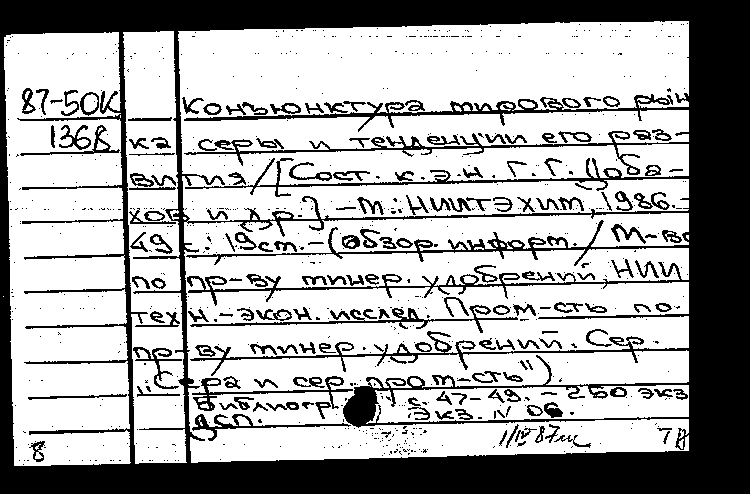 87-50К Конъюнктура мирового рын
1368 ка серы и тенденции его раз-
вития / [Сост. к.э.н. Г. Г.
хов и др.]. – М.: НИИТЭХИМ, 1986. –
49 с.; 19 см. – (Обзор. информ. / М-во
по пр-ву минер. удобрений, НИИ
техн.-экон. исслед. Пром-сть по
пр-ву минер. удобрений. Сер.
„Сера и сер. пром-сть").
Библиогр. с. 47-49. – 250 экз
ДСП. Экз. N 06.
8 7